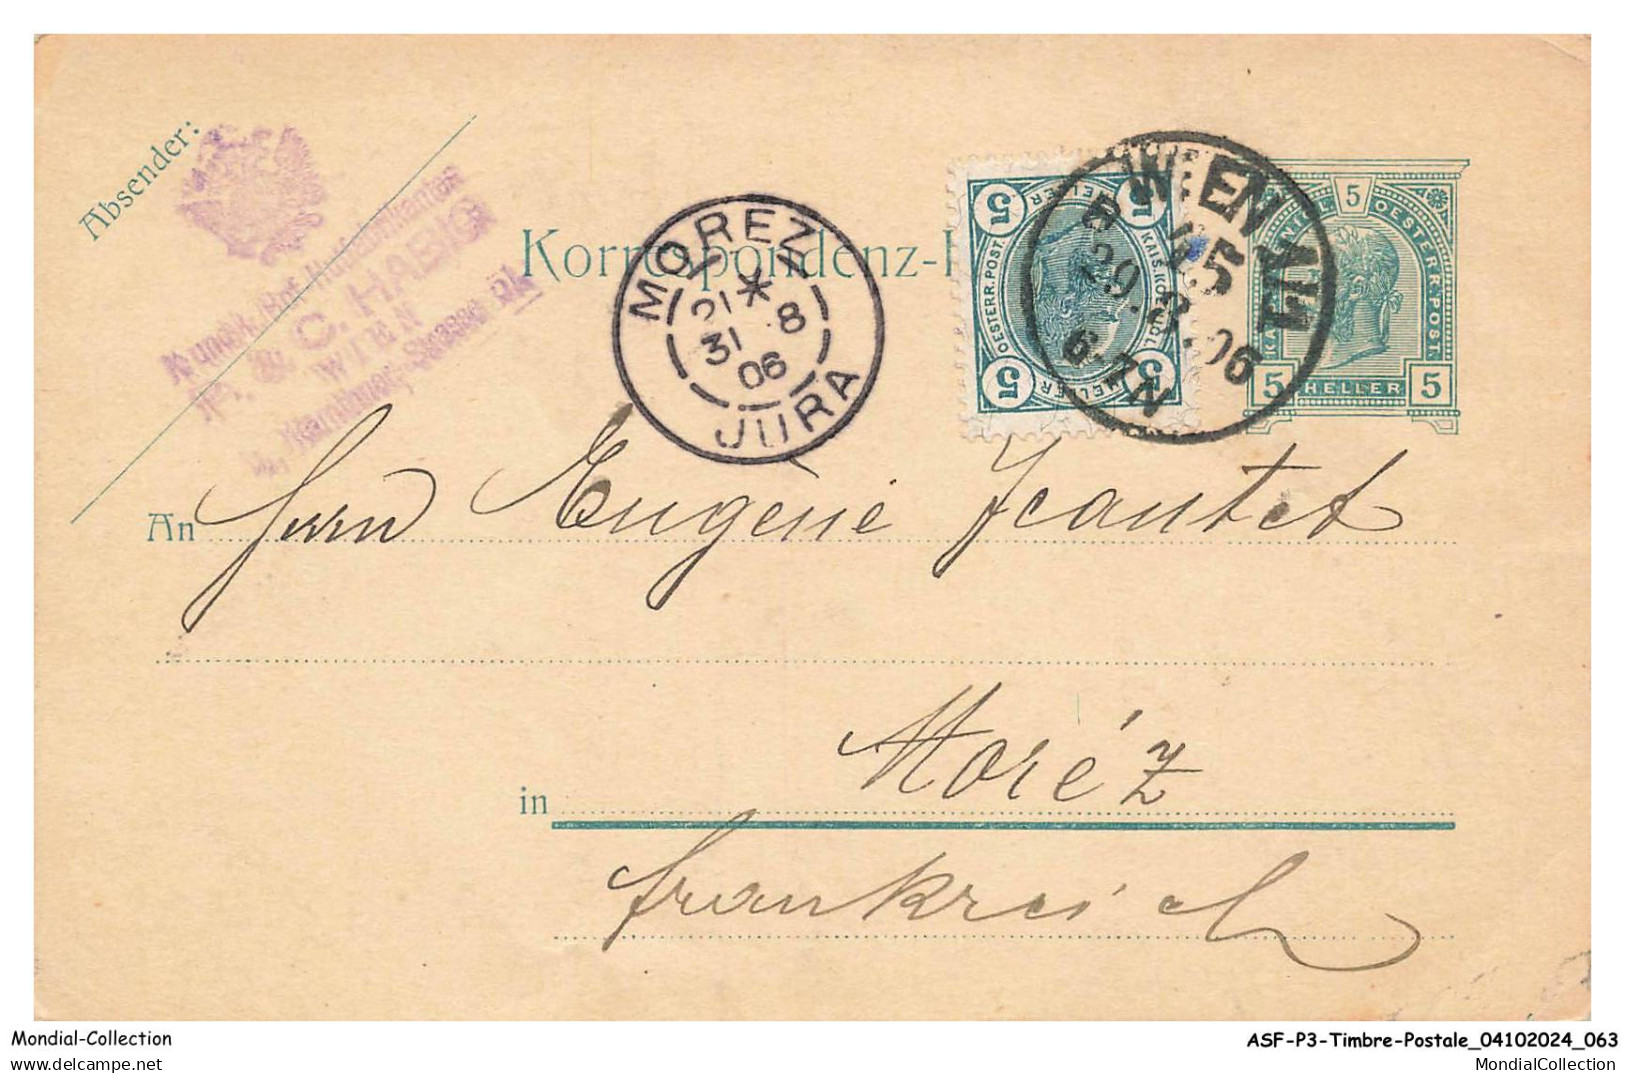 Absender:
K. und k. Hof-Hutfabrikanten
P. & C. HABIG
WIEN
Korrespondenz-
MOREZ
21 *
31 8
06
JURA
5 HELLER 5
OESTERR. POST.
5 HELLER 5
WIEN
B 45
29. 8. 06
6-7N
5
OESTERR. POST.
5 HELLER 5
An Herrn Eugène Jeantet
in Moréz
Frankreich
Mondial-Collection
mondial-collection.delcampe.net
ASF-P3-Timbre-Postale_04102024_063
MondialCollection